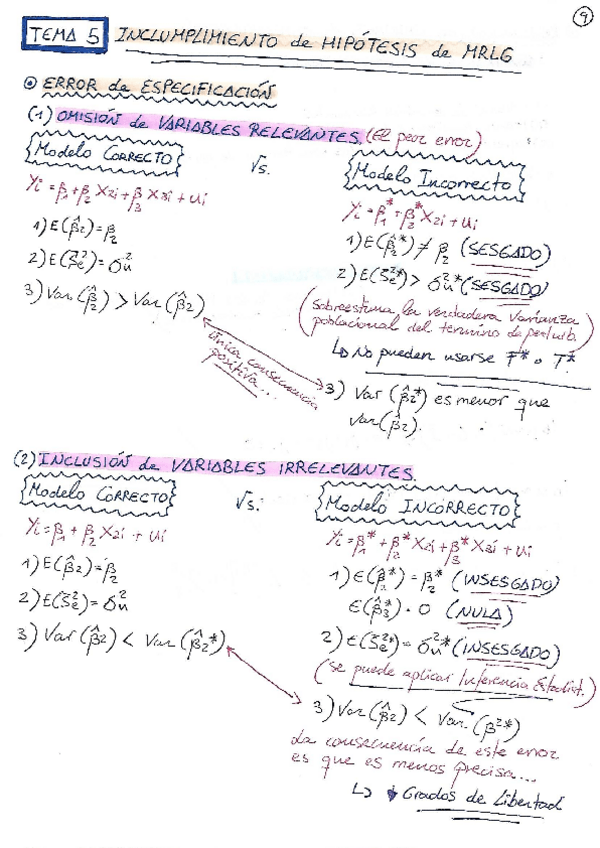 9
TEMA 5 INCLUMPLIMIENTO de HIPÓTESIS de MRLG
ERROR de ESPECIFICACIÓN
(1) OMISIÓN de VARIABLES RELEVANTES. (El peor error)
Modelo CORRECTO
Vs.
Modelo Incorrecto
Yi = β1 + β2 X2i + β3 X3i + ui
Yi = β1* + β2* X2i + ui
1) E(β̂2) = β2
1) E(β̂2*) ≠ β2 (SESGADO)
2) E(Se²) = σu²
2) E(Se²*) > σu²* (SESGADO)
3) Var(β̂2) > Var(β̂2)
(Sobreestima la verdadera varianza
poblacional del termino de perturb.)
↳ No pueden usarse F* o T*
única consecuencia
positiva...
3) Var (β̂2*) es menor que
Var(β̂2).
(2) INCLUSIÓN de VARIABLES IRRELEVANTES.
Modelo CORRECTO
Vs.
Modelo INCORRECTO
Yi = β1 + β2 X2i + ui
Yi = β1* + β2* X2i + β3* X3i + ui
1) E(β̂2) = β2
1) E(β̂2*) = β2* (INSESGADO)
E(β̂3*) = 0 (NULA)
2) E(Se²) = σu²
2) E(Se²*) = σu²* (INSESGADO)
3) Var(β̂2) < Var(β̂2*)
(se puede aplicar Inferencia Estadist.)
3) Var(β̂2) < Var(β2*)
La consecuencia de este error
es que es menos precisa...
↳ ↓ Grados de Libertad